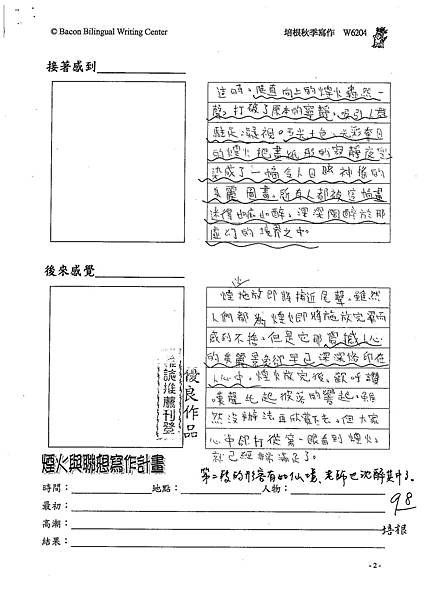 © Bacon Bilingual Writing Center
培根秋季寫作 W6204
接著感到
這時,筆直向上的煙火轟然一
聲,打破了原本的寧靜,吸引人群
駐足凝視。五光十色、光彩奪目
的煙火把畫紙般的寂靜夜空
染成了一幅令人目眩神搖的
美麗圖畫。所有人都被這幅畫
迷得如痴如醉,深深陶醉於那
虛幻的境界之中。
後來感覺
煙火施放即將接近尾聲。雖然
人們都為煙火即將施放完畢而
感到不捨,但是它那震撼人心
的美麗景象卻早已深深烙印在
人心中。煙火放完後,歡呼讚
嘆聲此起彼落的響起。雖
然沒辦法再欣賞下去,但大家
心中
就已經滿足了。
雜誌推薦刊登
優良作品
煙火與聯想寫作計畫
第二段的形容有如仙境、老師也沈醉其中了。
時間:
地點:
人物:
最初:
高潮:
結果:
98
培根
-2-